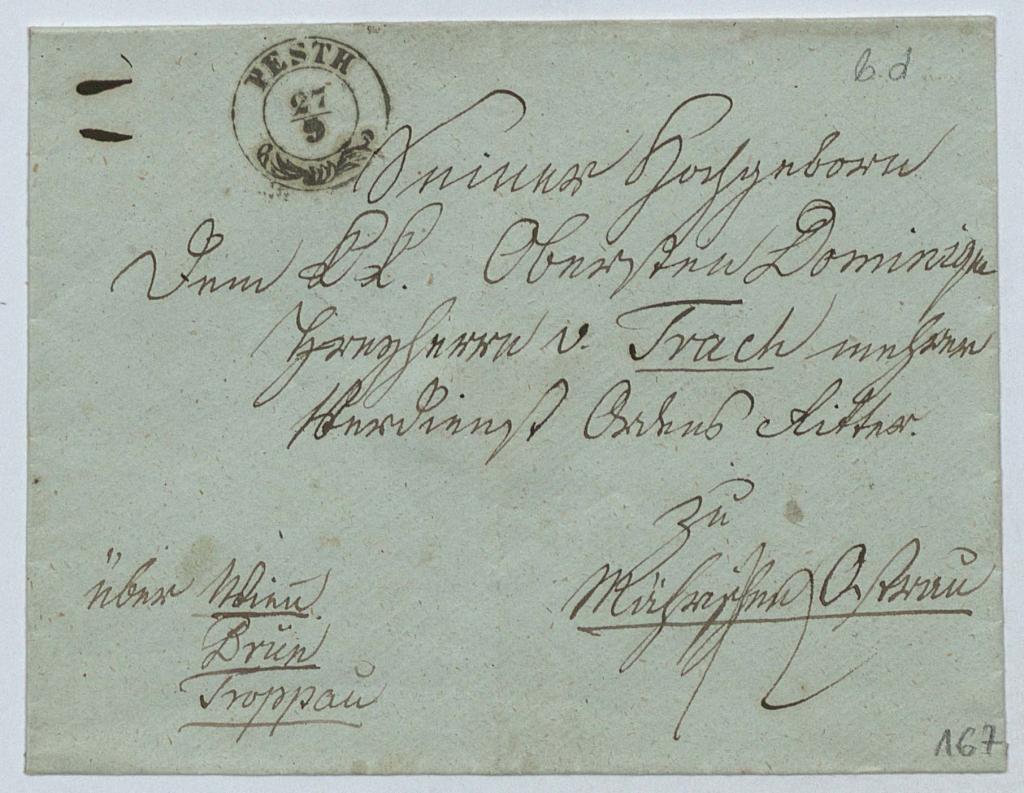 PESTH
27
9
b. d
Seiner Hochgeborn
Dem KK. Obersten Dominique
Freyherrn v. Trach mehrer
Verdienst Ordens Ritter.
zu
Mährischen Ostrau
über Wien
Brün
Troppau
167